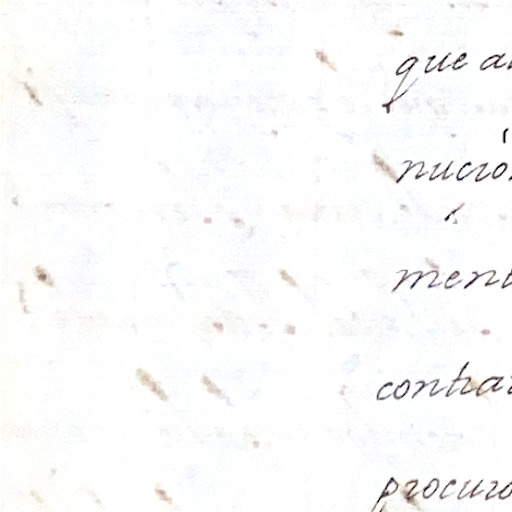 que a
nució
ment
contra
procuro